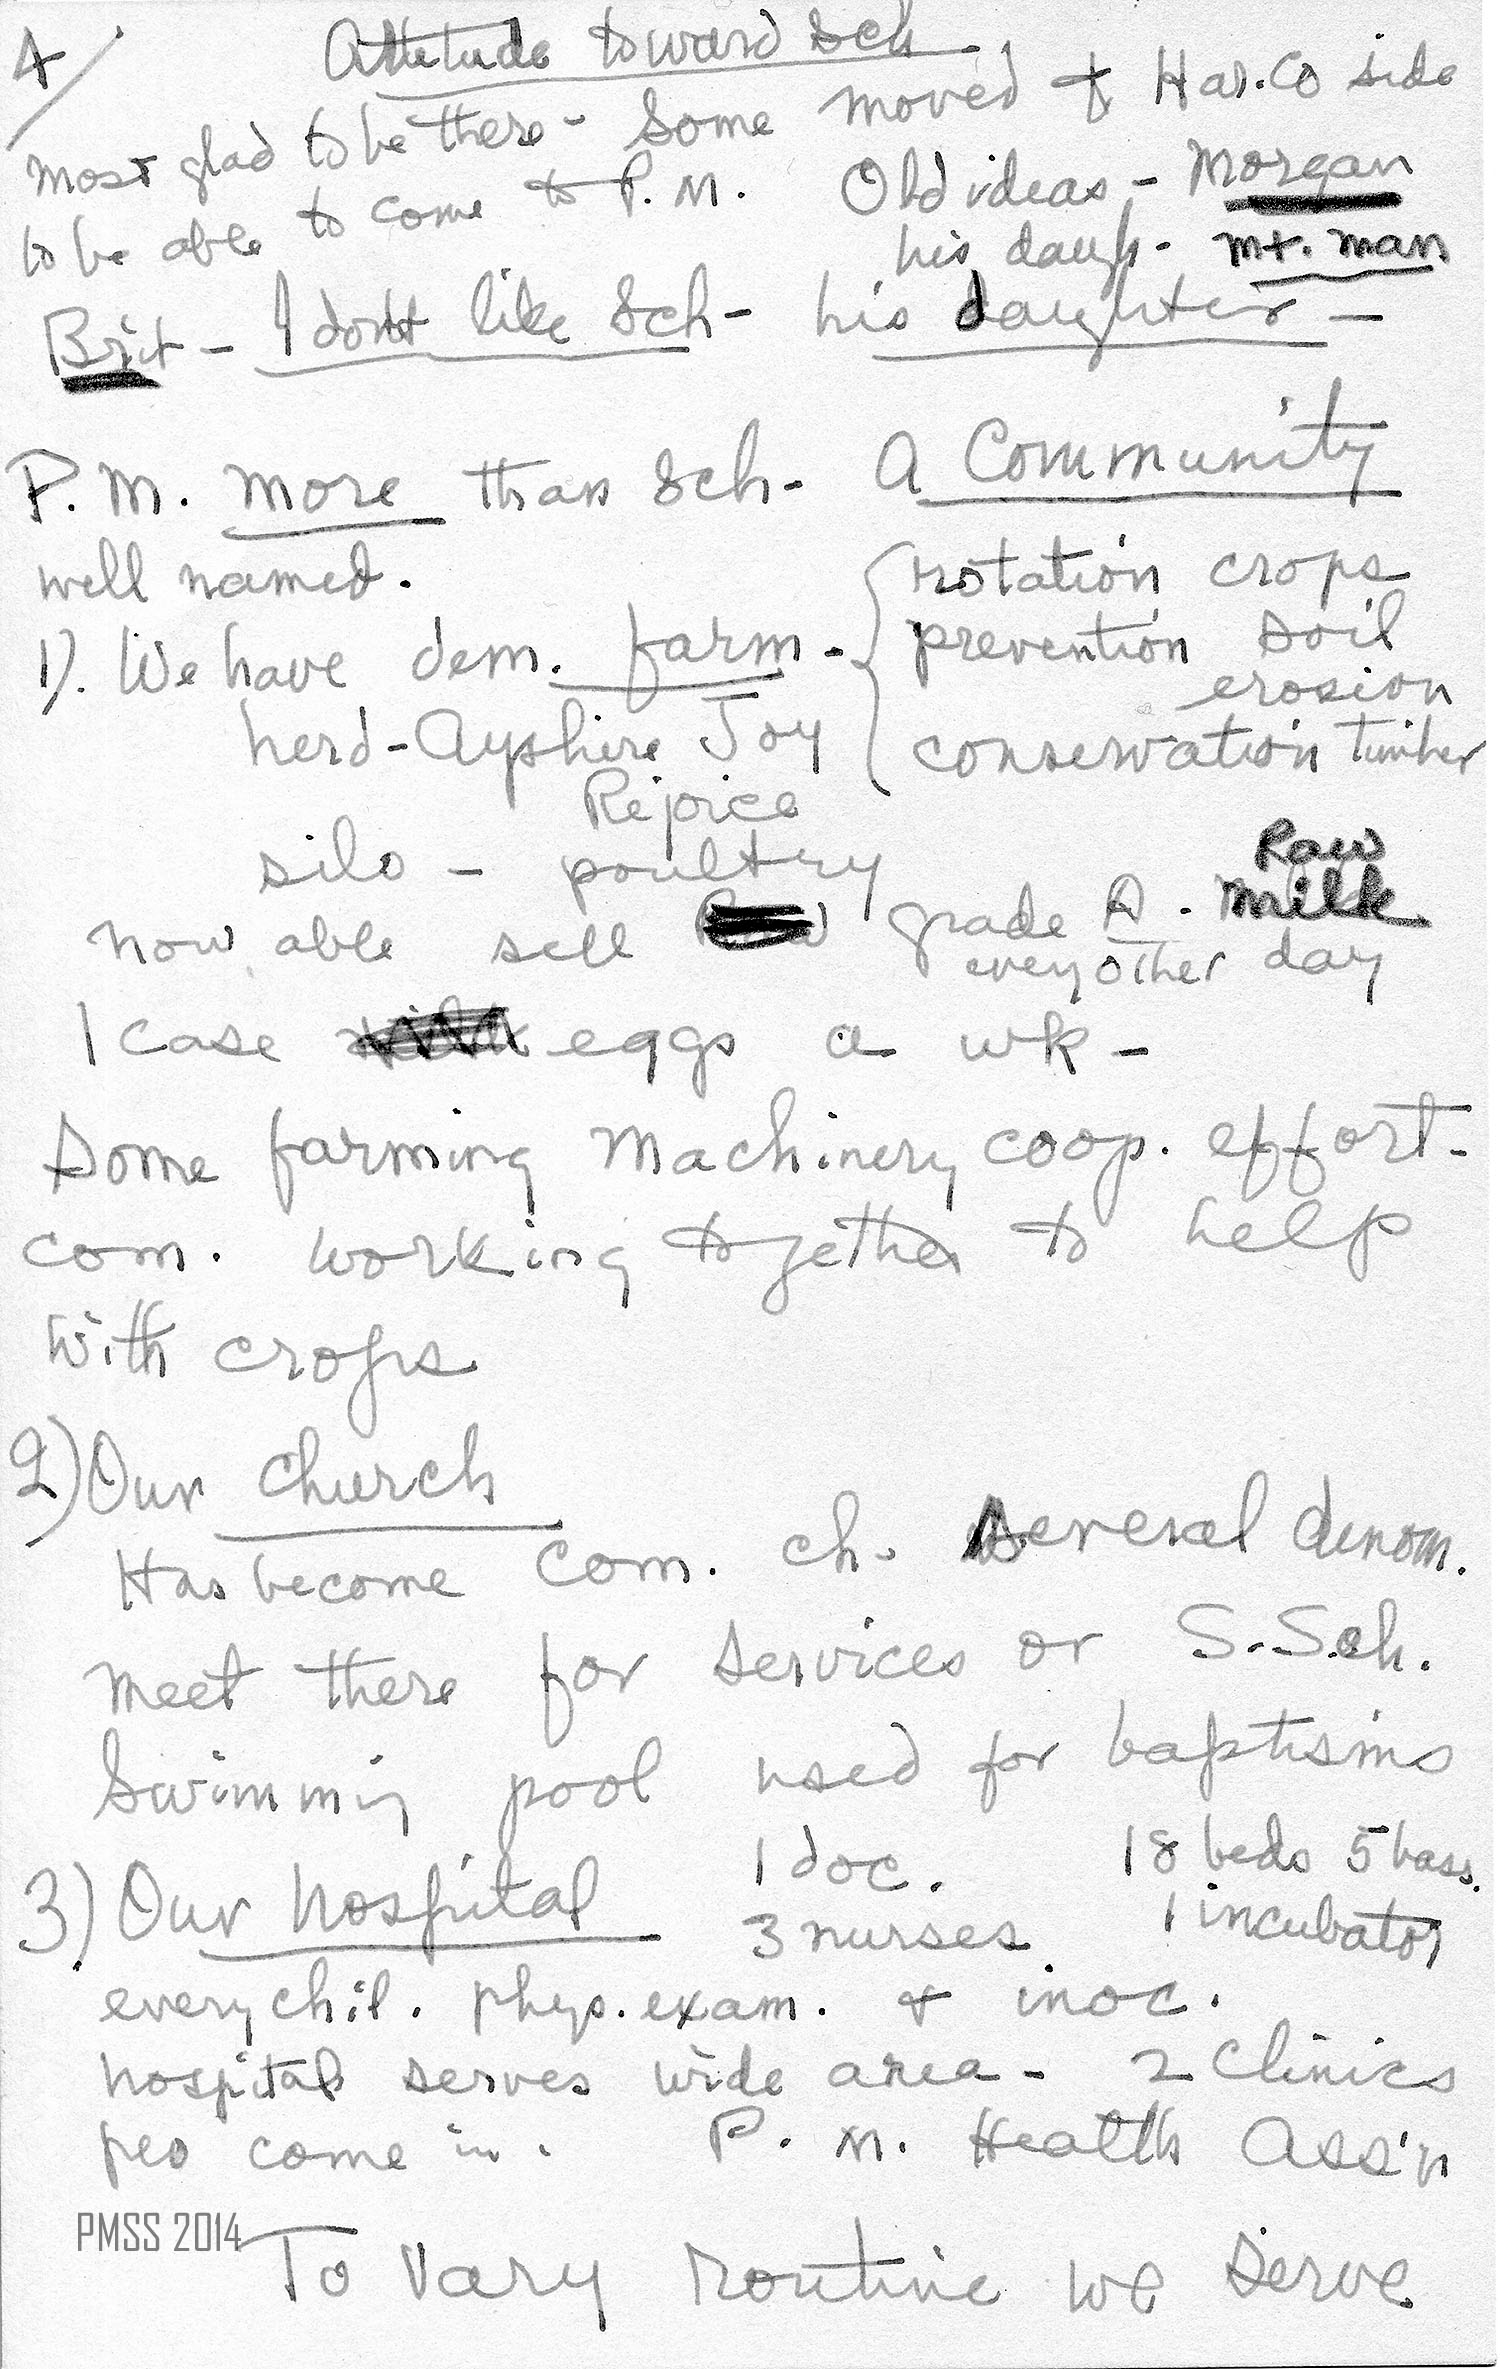 4/ Attitude toward Sch.
most glad to be there - Some moved + Har. Co side
to be able to come to P.M. Old ideas - Morgan
his daugh. - Mt. man
Brit - I don't like Sch - his daughter -
P.M. more than Sch - A Community
well named.
1). We have dem. farm - { rotation crops
prevention soil
erosion
herd - Ayshire Joy conservation timber
Rejoice
silo - poultry
now able sell grade A. Raw
Milk
every other day
1 case eggs a wk -
Some farming Machinery coop. effort -
com. working together to help
with crops
2) Our church
Has become com. ch. Several denom.
meet there for services or S. Sch.
Swimming pool used for baptisms
3) Our hospital 1 doc. 18 beds 5 bass.
3 nurses 1 incubator
every chil. phys. exam. + inoc.
hospital serves wide area - 2 Clinics
peo come in. P. M. Health Ass'n
PMSS 2014
To Vary routine we serve